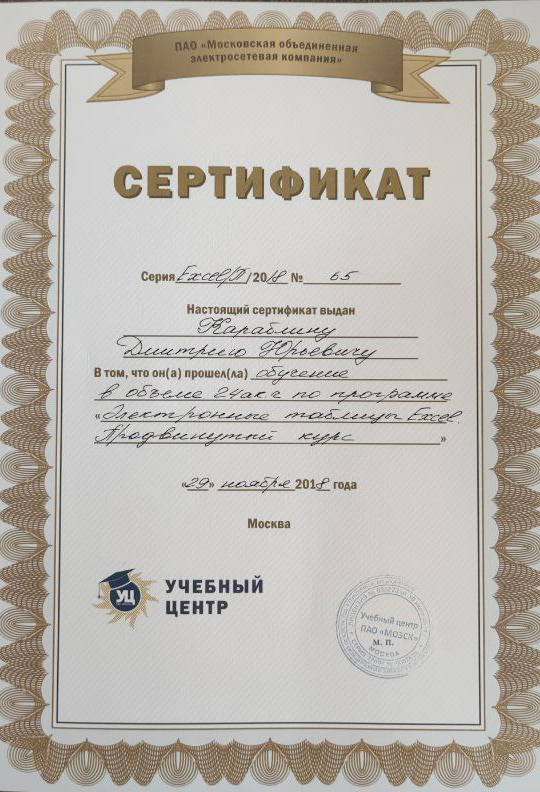 ПАО «Московская объединенная
электросетевая компания»
СЕРТИФИКАТ
Серия Excel/П/2018 № 65
Настоящий сертификат выдан
Караблину
Дмитрию Юрьевичу
В том, что он(а) прошел(ла) обучение
в объеме 24 ак.г по программе
«Электронные таблицы Excel.
Продвинутый курс»
«29» ноября 2018 года
Москва
УЦ
УЧЕБНЫЙ
ЦЕНТР
Учебный центр
ПАО «МОЭСК»
М. П.
МОСКВА